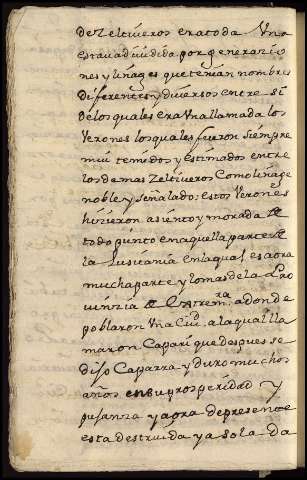 de Zeltiueros era toda Una
estaua diuidida por generazio
nes y linages que tenian nombres
diferentes y diuersos entre si
de los quales era Una llamada los
Verones los quales fueron siempre
mui temidos y estimados entre
los demas Zeltiueros Como linage
noble y señalado; estos Verones
hizieron asiento y morada de
todo punto en aquella parte de
la Lusitania en la qual es aora
mucha parte y lo mas de la Pro
uinzia de Estremra adonde
poblaron Una Ciud. a la qual lla
maron Capari que despues se
dijo Caparra y duro muchos
años en su prosperidad y
pujanza y aora de presente
esta destruida y asolada